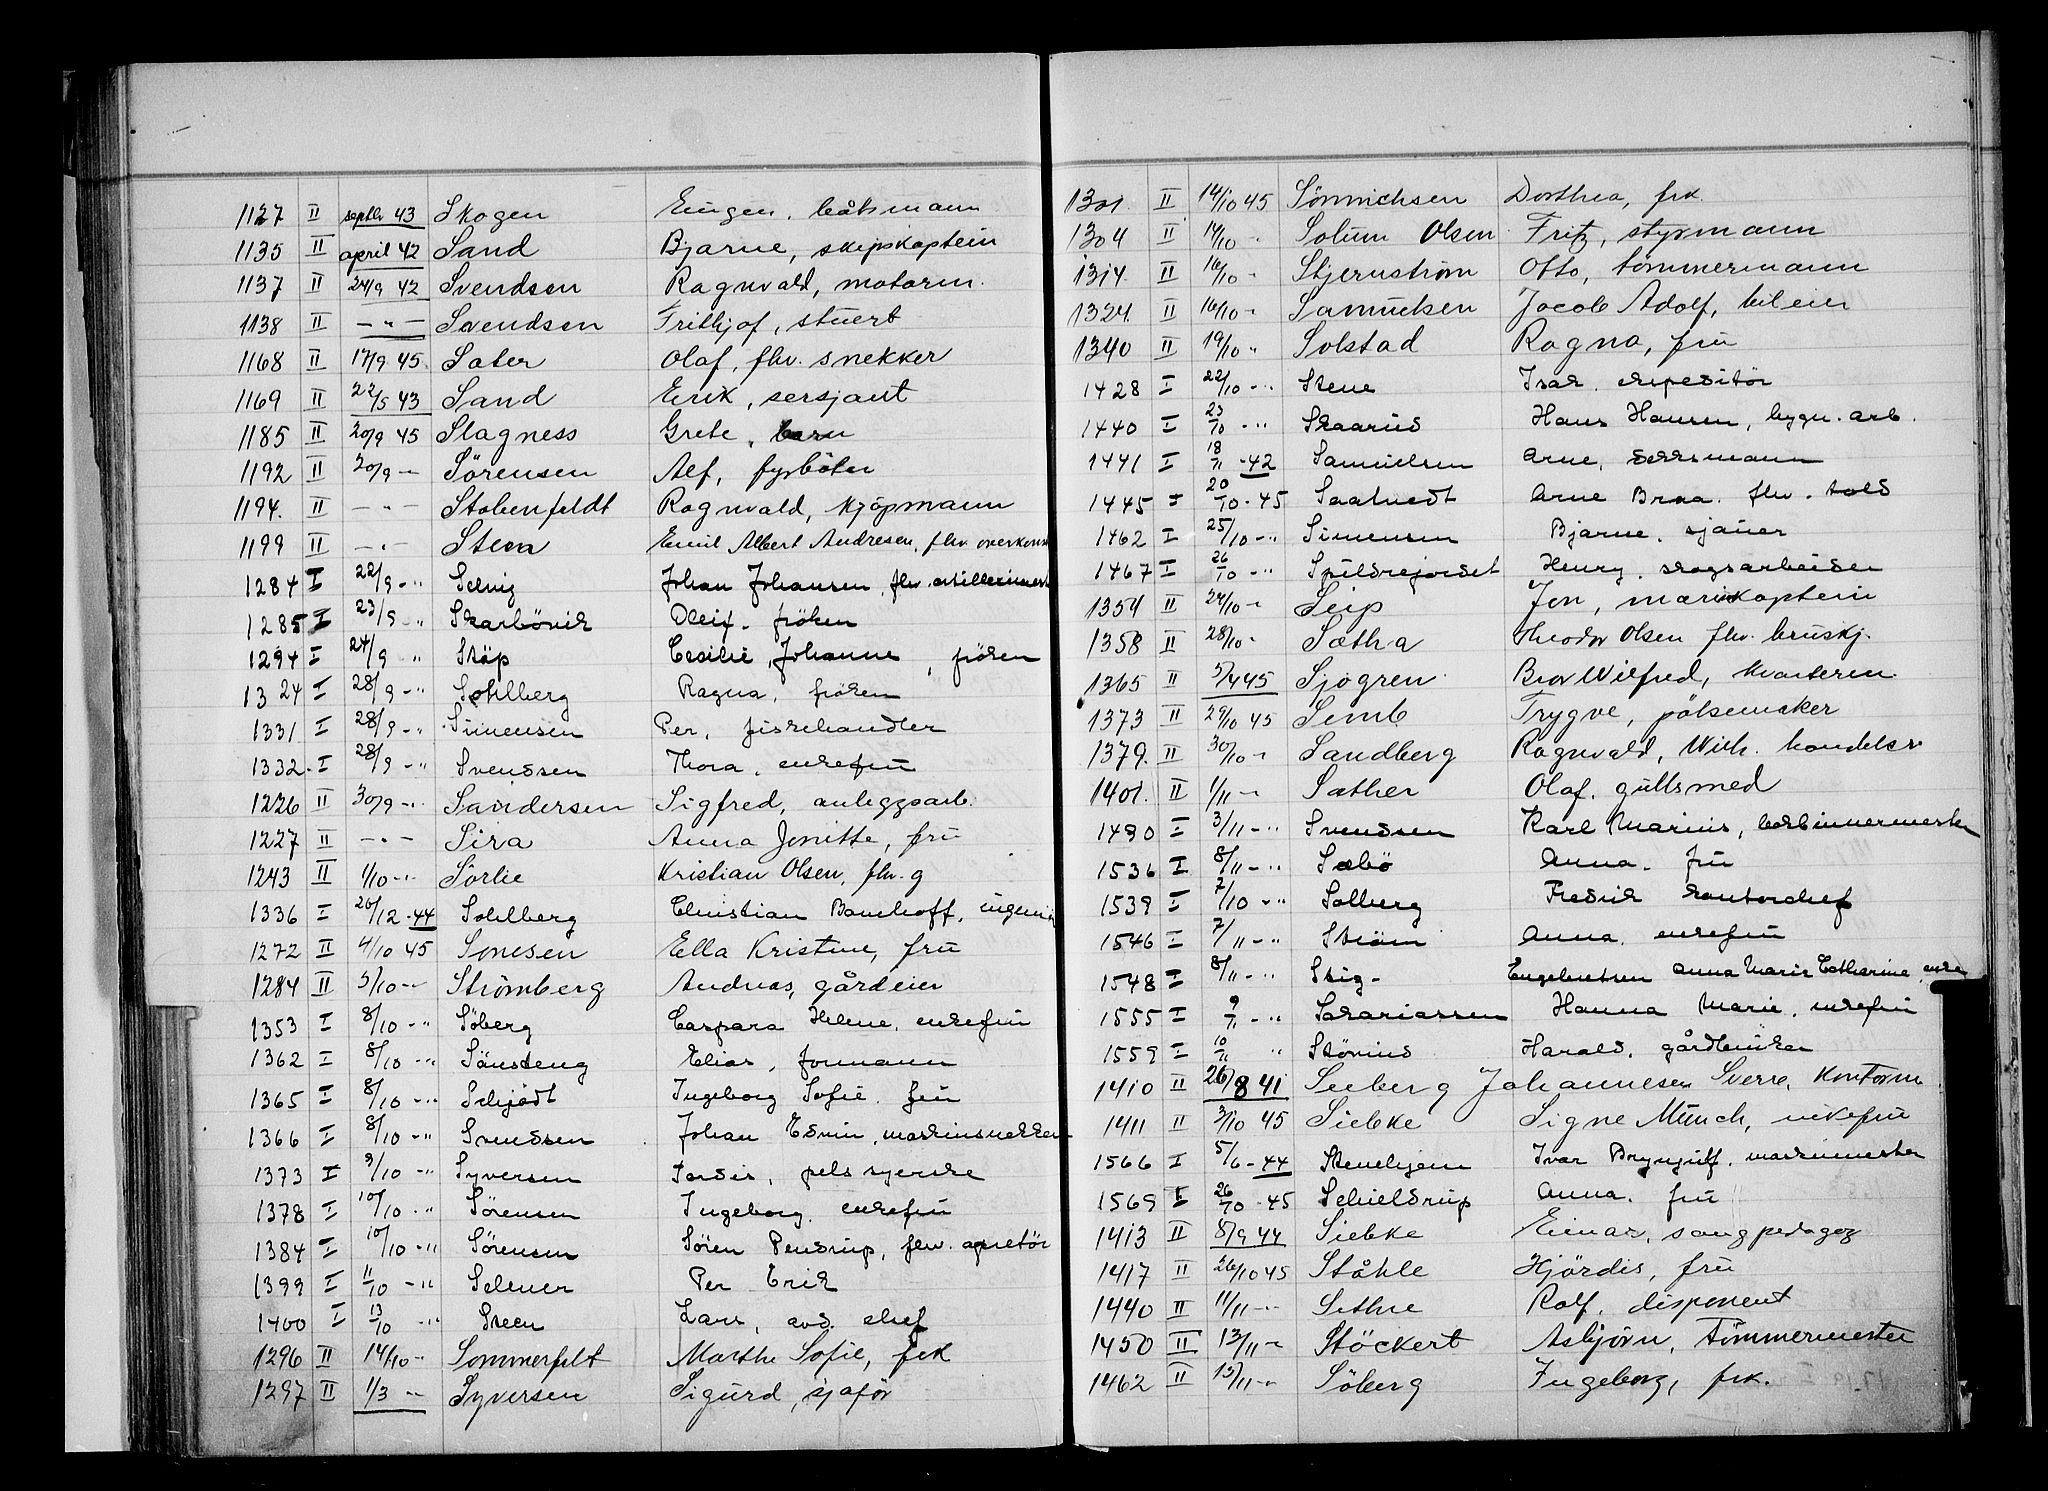 1127 II septbr 43 Skogen Eugen, båtsmann
1135 II april 42 Sand Bjarne, skipskaptein
1137 II 24/9 42 Svendsen Ragnvald, motorm.
1138 II - " - Svendsen Frithjof, stuert
1168 II 17/9 45. Sater Olaf, fhv. snekker
1169 II 22/5 43 Sand Erik, sersjant
1185 II 20/9 45 Slagness Grete, barn
1192 II 20/9 - Sörensen Alf, fyrböter
1194. II - " - Stobenfeldt Ragnvald, kjöpmann
1199 II - " - Steen Emil Albert Andresen, fhv. overkons
1284 I 22/9 - " Selvig Johan Johansen, fhv. artillerimest
1285 I 23/9 - " Skarbövik fröken
1294 I 24/9 " Stöp Cecilie, Johanne, fröken
1324 I 28/9 - " Sohlberg Ragna, fröken
1331 I 28/9 - " Simensen Per, fiskehandler
1332. I 28/9 - " Svendsen Thora, enkefru
1226 II 30/9 - " Sandersen Sigfred, anleggsarb.
1227 II - " - Sira Anna Jonitte, fru
1243 II 1/10 - " Sörlie Kristian Olsen, fhv. g
1336 I 20/12 - 44 Sohlberg Christian Bomhoff, ingeniö
1272 II 4/10 45 Sonesen Ella Kristine, fru
1284 II 5/10 - Strömberg Andreas, gårdeier
1353 I 8/10 - " Söberg Caspara Helene, enkefru
1362 I 8/10 - " Sönsteng Elias, formann
1365 I 8/10 - " Schjödt Ingeborg Sofie, fru
1366 I 8/10 - " Svendsen Johan Edvin, maskinsnekker
1373 I 9/10 - " Syversen Tordis, pels syerske
1378 I 10/10 - " Sörensen Ingeborg, enkefru
1384 I 10/10 - " Sörensen Sören Pendrup, fhv. apretör
1399 I 11/10 - " Selmer Per Erik
1400 I 13/10 - " Steen Lars, avd. chef
1296 II 14/10 - " Sommerfelt Marthe Sofie, frk
1297 II 1/3 " Syversen Sigurd, sjaför
1301. II 14/10 45 Sönnichsen Dorthea, frk.
1304 II 14/10 - Solum Olsen Fritz, styrmann
1314. II 16/10 - Stjernström Otto, tömmermann
1324. II 16/10 - Samuelsen Jacob Adolf, bileier
1340 II 19/10 " Solstad Ragna, fru
1428 I 22/10 - " Stene Isak, ekspeditör
1440 I 23/10 - " Skaarud Hans Hansen, bygn. arb.
1441 I 18/11 - 42 Samuelsen Arne, dekksmann
1445 I 20/10 - 45 Saatvedt Arne Braa, fhv. told
1462 I 25/10 - " Simensen Bjarne, sjauer
1467 I 26/10 - " Spildrejordet Henry, skogsarbeider
1354 II 24/10 - Seip Jon, marinekaptein
1358 II 28/10 - Sætha Theodor Olsen fhv. bruskj.
1365 II 5/4 45 Sjögren Bror Wilfred, kvarterm.
1373 II 29/10 45 Semb Trygve, pölsemaker
1379. II 30/10 - Sandberg Ragnvald, Wilh. handelsr
1401. II 1/11 - Sæther Olaf, gullsmed
1490 I 3/11 - " Svendsen Karl Marius, losbinnermester
1536 I 8/11 - " Sæbö Anna, fru
1539 I 7/10 - " Solberg Fredrik kontorchef
1546 I 7/11 - " Ström Anna, enkefru
1548 I 8/11 - " Stig- Engebretsen Anna Marie Catharine, enke
1555 I 9/11 - " Sakariassen Hanna Marie, enkefru
1559 I 10/11 " Störius Harald, gårdbruker
1410 II 26/8 41 Seeberg Johannesen Sverre, kontorm
1411 II 3/10 45 Siebke Signe Münch, enkefru
1566 I 5/6 - 44 Stenehjem Ivar Brynjulf, maskinmester
1569 I 26/10 - 45 Schieldrup Anna, fru
1413 II 8/9 44 Siebke Einar, sangpedagog
1417 II 26/10 45 Ståhle Hjördis, fru
1440 II 11/11 - " Sethre Rolf, disponent
1450 II 13/11 - Stöckert Asbjörn, Tömmermester
1462 II 15/11 - Söberg Ingeborg, frk.